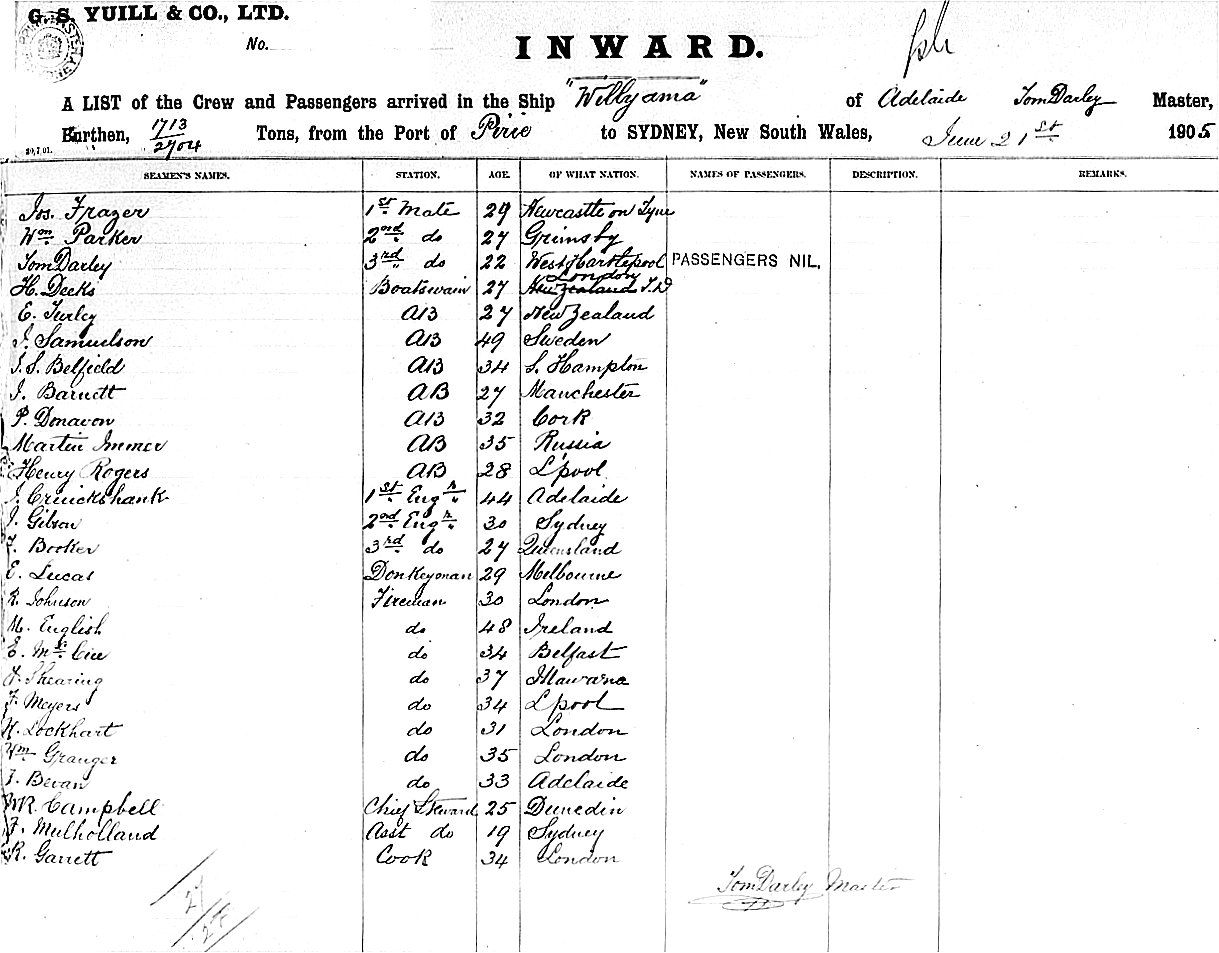 G. S. YUILL & CO., LTD.
No.
INWARD.
A LIST of the Crew and Passengers arrived in the Ship "Willyama" of Adelaide Tom Darley Master,
Burthen, 1713/2704 Tons, from the Port of Pirie to SYDNEY, New South Wales, June 21st 1905
20,7,01.
SEAMEN'S NAMES. STATION. AGE. OF WHAT NATION. NAMES OF PASSENGERS. DESCRIPTION. REMARKS.
Jos. Frazer 1st Mate 29 Newcastle on Tyne
Wm Parker 2nd do 27 Grimsby
Tom Darley 3rd do 22 West Hartlepool PASSENGERS NIL.
London
H. Deeks Boatswain 27 New Zealand T.D
E. Turley AB 27 New Zealand
J. Samuelson AB 49 Sweden
J. S. Belfield AB 34 S. Hampton
J. Barnett AB 27 Manchester
P. Donavon AB 32 Cork
Martin Immer AB 35 Russia
Henry Rogers AB 28 L'pool
J. Cruickshank 1st Engr 44 Adelaide
J. Gibson 2nd Engr 30 Sydney
F. Booker 3rd do 27 Queensland
E. Lucas Donkeyman 29 Melbourne
R. Johnson Fireman 30 London
M. English do 48 Ireland
E. Mc Cue do 34 Belfast
F. Shearing do 37 Illawarra
F. Meyers do 34 L'pool
H. Lockhart do 31 London
Wm Granger do 35 London
J. Bevan do 33 Adelaide
WR. Campbell Chief Steward 25 Dunedin
F. Mulholland Asst do 19 Sydney
R. Garrett Cook 34 London
Tom Darley Master